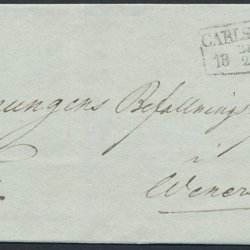 CARLS
18 2
ungens Befallning
i
Wener